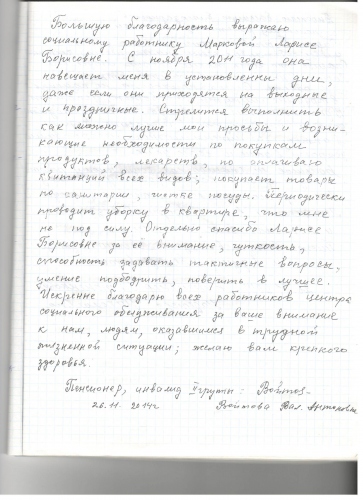 Большую благодарность выражаю
социальному работнику Марковой Ларисе
Борисовне. С ноября 2011 года она
навещает меня в установленны дни,
даже если они приходятся на выходные
и праздничные. Стремится выполнить
как можно лучше мои просьбы и возни-
кающие необходимости по покупкам
продуктов, лекарств, по оплачиваю
квитанций всех видов; покупает товары
по санитарии, чистке посуды. Периодически
проводит уборку в квартире, что мне
не под силу. Отдельно спасибо Ларисе
Борисовне за её внимание, чуткость,
способность задавать тактичные вопросы,
умение подбодрить, поверить в лучшее.
Искренне благодарю всех работников центра
социального обслуживания за ваше внимание
к нам, людям, оказавшимся в трудной
жизненной ситуации; желаю вам крепкого
здоровья.
Пенсионер, инвалид II группы:
26.11 2014г Войтова Вал. Антоновна